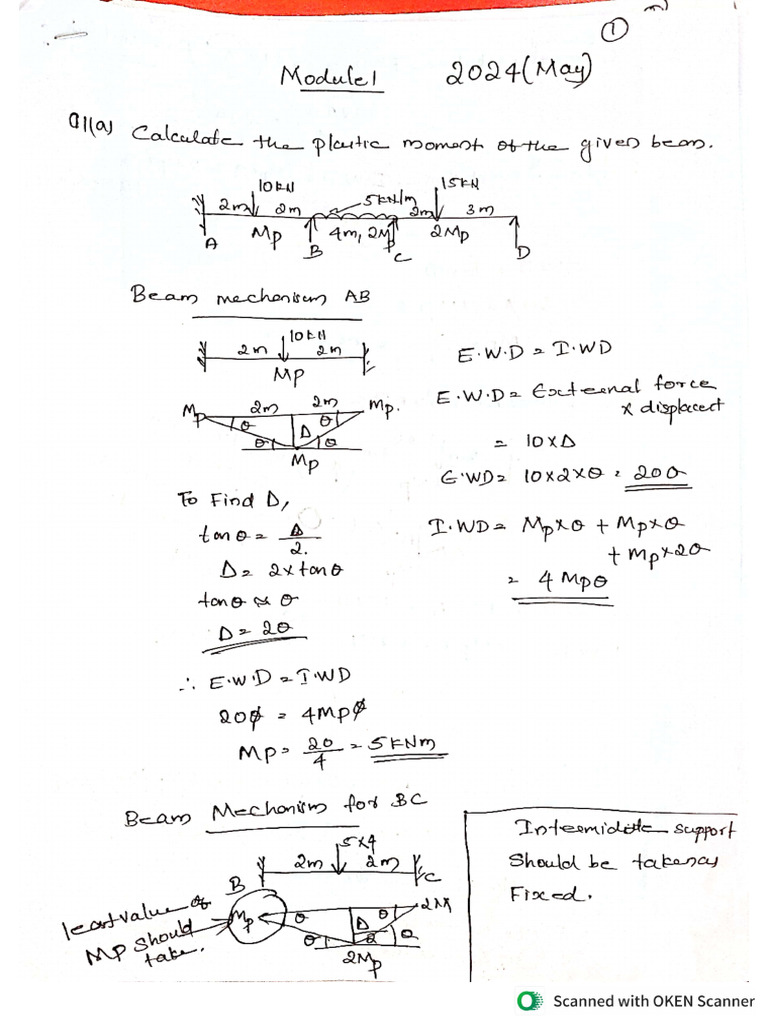 ①
Module 1 2024 (May)
Q1(a) Calculate the plastic moment of the given beam.
10KN 5KN/m 15KN
2m 2m 2m 3m
A Mp B 4m, 2Mp C 2Mp D
Beam mechanism AB
10KN
2m 2m
Mp
E.W.D = I.WD
E.W.D = External force
x displacect
= 10xΔ
E.WD = 10x2xθ = 20θ
Mp 2m 2m Mp.
θ Δ θ
θ θ
Mp
I.WD = Mpxθ + Mpxθ
+ Mpx2θ
= 4Mpθ
To Find Δ,
tanθ = Δ/2.
Δ = 2xtanθ
tanθ ≈ θ
Δ = 2θ
∴ E.W.D = I.WD
20θ = 4Mpθ
Mp = 20/4 = 5KNm
Beam Mechanism for BC
5x4
2m 2m
B C
least value of
Mp should
take.
Mp θ Δ θ
θ θ θ
2Mp
Intermidiate support
Should be taken as
Fixed.
Scanned with OKEN Scanner